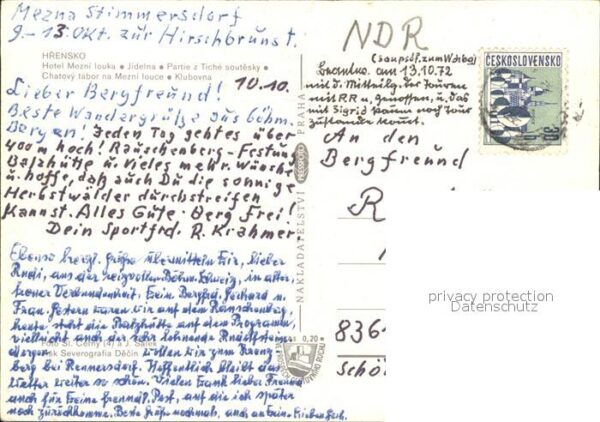 Mezna Stimmersdorf
9.-13. Okt. zur Hirschbrunst.
HŘENSKO
Hotel Mezní louka • Jídelna • Partie z Tiché soutěsky •
Chatový tábor na Mezní louce • Klubovna
10.10.
Lieber Bergfreund!
Beste Wandergrüße aus böhm.
Bergen! Jeden Tag geht es über
400 m hoch! Rauschenberg-Festung
Balzhütte u. vieles mehr. Wünsche
u. hoffe, daß auch Du die sonnige
Herbstwälder durchstreifen
Kannst. Alles Gute. Berg Frei!
Dein Sportfrd. R. Krahmer.
Ebenso herzl. Grüße übermitteln Dir, lieber
Rudi, aus der reizvollen Böhm. Schweiz, in alter,
treuer Verbundenheit, Dein Bergfrd. Gerhard u.
Frau. Gestern waren wir auf dem Rauschenberg,
heute steht die Balzhütte auf dem Programm,
vielleicht auch der sehr lohnende
Foto Sl. Černý (4) a J. Šálek
Morgen wollen wir zum
Tisk Severografia Děčín
berg bei Rennersdorf. Hoffentlich bleibt das
Wetter weiter so schön. Vielen Dank lieber Freund
auch für Deine freundl. Post, auf die ich später
noch zurückkomme. Beste Grüße nochmals, auch an Deine
NAKLADATELSTVÍ
PRAHA
0,20 *
NDR
am 13.10.72
mit d. Mitteilg. der Touren
mit RR u. Genossen, u. das
mit Sigrid keine noch Tour
zustande kommt.
ČESKOSLOVENSKO
An den
Bergfreund
R
836
Schö
privacy protection
Datenschutz